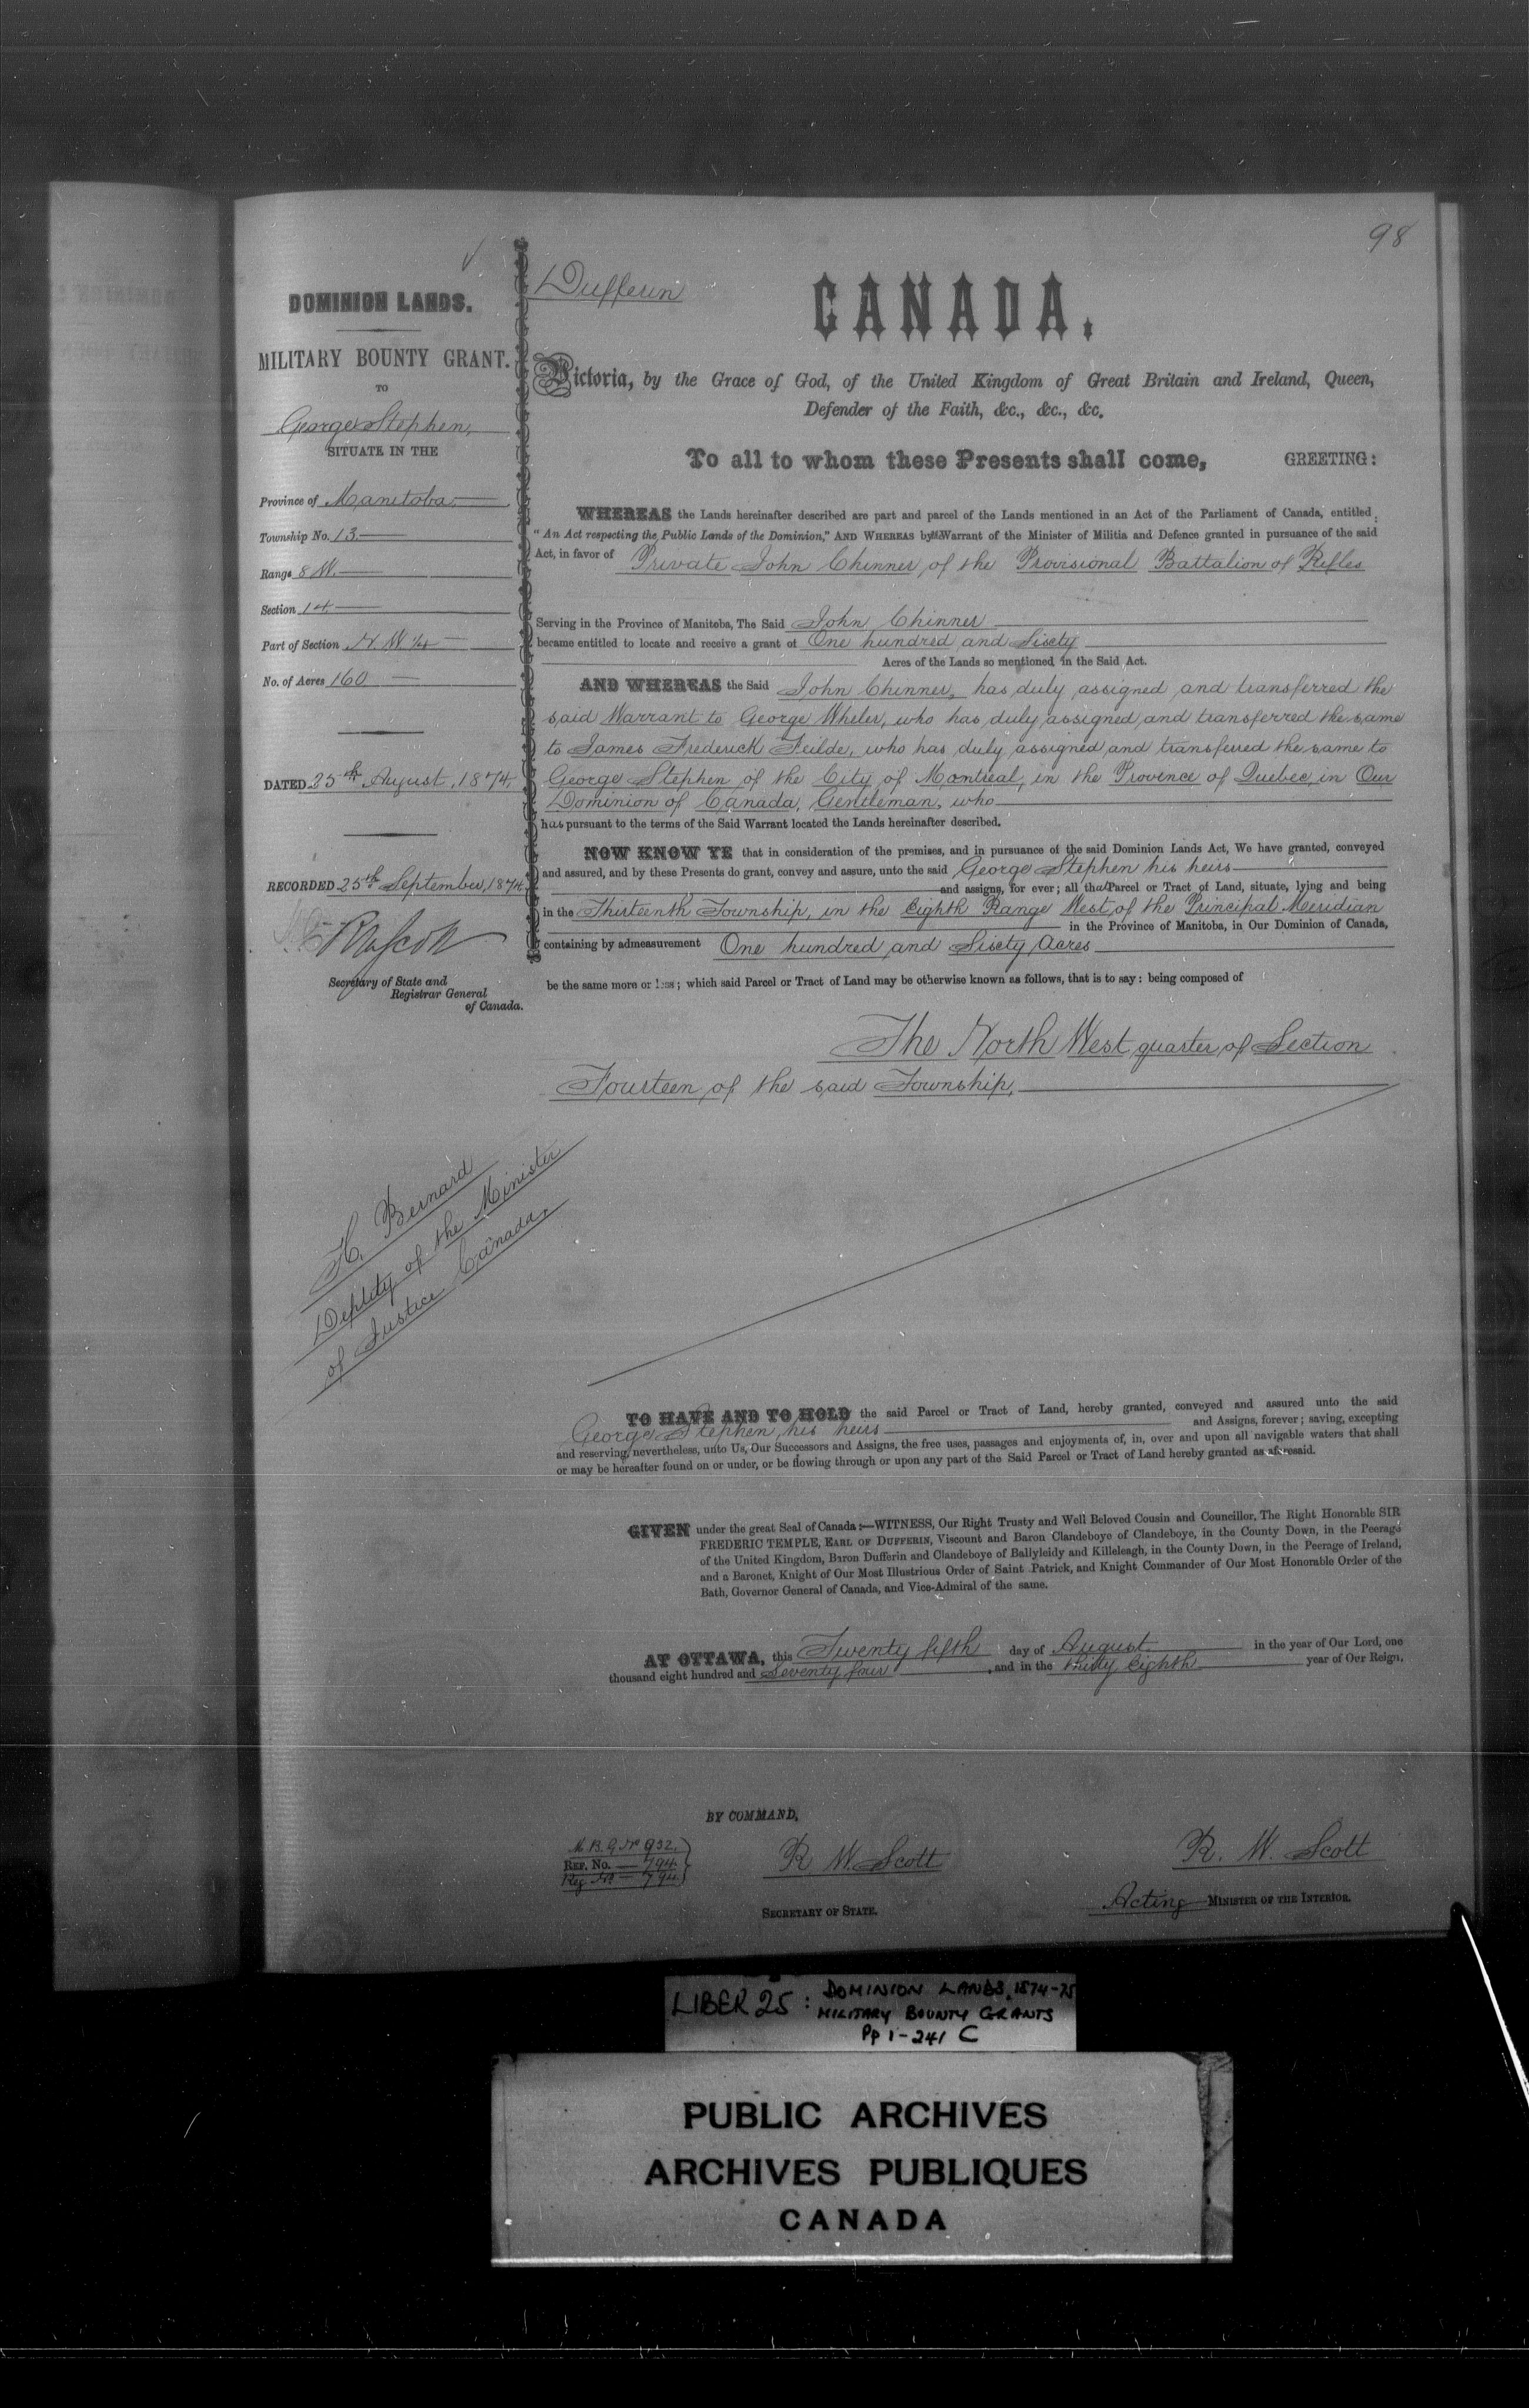 98
DOMINION LANDS.
MILITARY BOUNTY GRANT.
TO
George Stephen,
SITUATE IN THE
Province of Manitoba
Township No. 13
Range 8 W.
Section 14
Part of Section N W 1/4
No. of Acres 160
DATED 25th August, 1874,
RECORDED 25th September, 1874,
R W Scott
Secretary of State and
Registrar General
of Canada.
H. Bernard
Deputy of the Minister
of Justice Canada,
Dufferin
CANADA.
Victoria, by the Grace of God, of the United Kingdom of Great Britain and Ireland, Queen,
Defender of the Faith, &c., &c., &c.
To all to whom these Presents shall come, GREETING:
WHEREAS the Lands hereinafter described are part and parcel of the Lands mentioned in an Act of the Parliament of Canada, entitled
"An Act respecting the Public Lands of the Dominion," AND WHEREAS by Warrant of the Minister of Militia and Defence granted in pursuance of the said
Act, in favor of Private John Chinner of the Provisional Battalion of Rifles
Serving in the Province of Manitoba, The Said John Chinner
became entitled to locate and receive a grant of One hundred and Sixty
Acres of the Lands so mentioned in the Said Act.
AND WHEREAS the Said John Chinner, has duly assigned and transferred the
said Warrant to George Wheler, who has duly assigned and transferred the same
to James Frederick Feilde, who has duly assigned and transferred the same to
George Stephen of the City of Montreal, in the Province of Quebec, in Our
Dominion of Canada, Gentleman, who
has pursuant to the terms of the Said Warrant located the Lands hereinafter described.
NOW KNOW YE that in consideration of the premises, and in pursuance of the said Dominion Lands Act, We have granted, conveyed
and assured, and by these Presents do grant, convey and assure, unto the said George Stephen his heirs
and assigns, for ever; all that Parcel or Tract of Land, situate, lying and being
in the Thirteenth Township, in the Eighth Range West, of the Principal Meridian
in the Province of Manitoba, in Our Dominion of Canada,
containing by admeasurement One hundred and Sixty Acres
be the same more or less; which said Parcel or Tract of Land may be otherwise known as follows, that is to say: being composed of
The North West quarter of Section
Fourteen of the said Township,
TO HAVE AND TO HOLD the said Parcel or Tract of Land, hereby granted, conveyed and assured unto the said
George Stephen, his heirs and Assigns, forever; saving, excepting
and reserving, nevertheless, unto Us, Our Successors and Assigns, the free uses, passages and enjoyments of, in, over and upon all navigable waters that shall
or may be hereafter found on or under, or be flowing through or upon any part of the Said Parcel or Tract of Land hereby granted as aforesaid.
GIVEN under the great Seal of Canada:—WITNESS, Our Right Trusty and Well Beloved Cousin and Councillor, The Right Honorable SIR
FREDERIC TEMPLE, EARL OF DUFFERIN, Viscount and Baron Clandeboye of Clandeboye, in the County Down, in the Peerage
of the United Kingdom, Baron Dufferin and Clandeboye of Ballyleidy and Killeleagh, in the County Down, in the Peerage of Ireland,
and a Baronet, Knight of Our Most Illustrious Order of Saint Patrick, and Knight Commander of Our Most Honorable Order of the
Bath, Governor General of Canada, and Vice-Admiral of the same.
AT OTTAWA, this Twenty fifth day of August in the year of Our Lord, one
thousand eight hundred and Seventy four, and in the thirty Eighth year of Our Reign.
BY COMMAND,
M. B. G. No 932.
REF. No. — 794.
Reg No — 794
R W. Scott
SECRETARY OF STATE.
R. W. Scott
Acting MINISTER OF THE INTERIOR.
LIBER 25: DOMINION LANDS, 1874-75
MILITARY BOUNTY GRANTS
Pp 1-241 C
PUBLIC ARCHIVES
ARCHIVES PUBLIQUES
CANADA